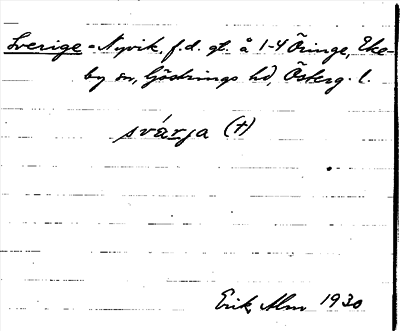 Sverige = Nyvik, f.d. gt. å 1-4 Öringe, Eke-
by sn, Göstrings hd, Österg. l.
svárja (+)
Erik Alm 1930